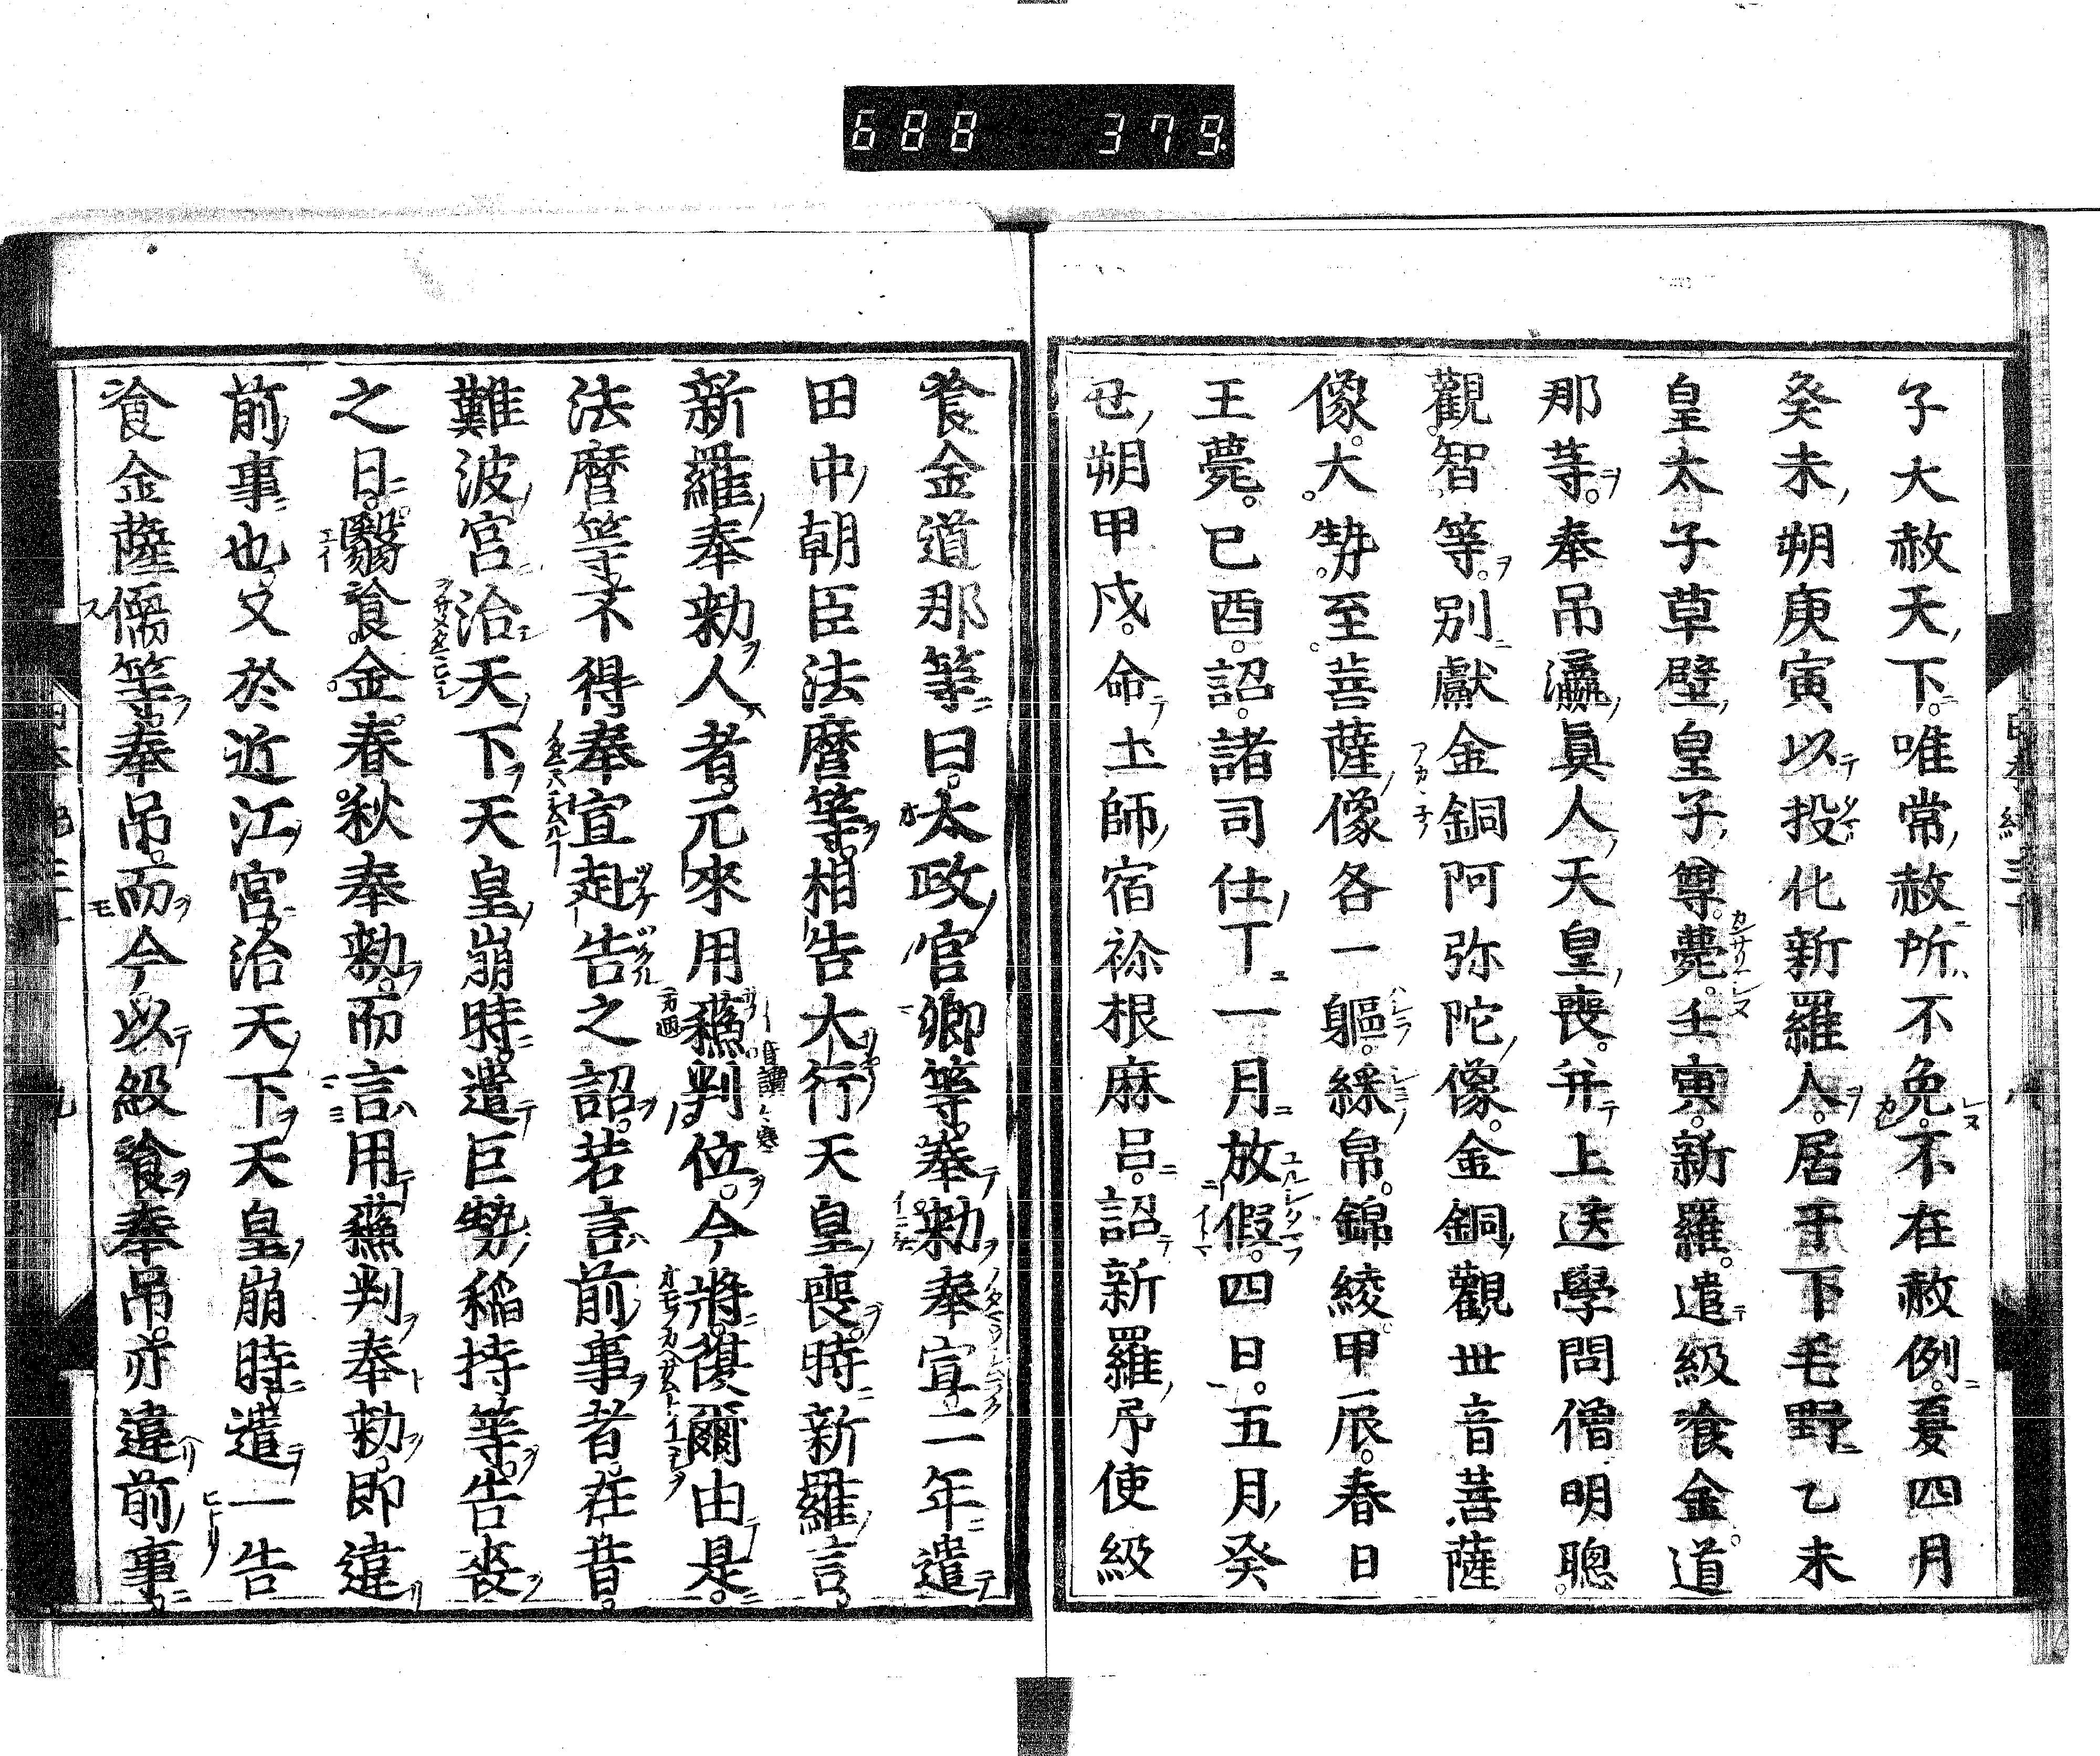 688 379
子大赦天下唯常赦所不免不在赦例夏四月
癸未朔庚寅以投化新羅人居于下毛野乙未
皇太子草壁皇子尊薨壬寅新羅遣級飡金道
那等奉吊瀛眞人天皇喪并上送學問僧明聰
觀智等別獻金銅阿弥陀像金銅觀世音菩薩
像大勢至菩薩像各一軀綵帛錦綾甲辰春日
王薨己酉詔諸司仕丁一月放假四日五月癸
丑朔甲戌命土師宿祢根麻呂詔新羅弔使級
飡金道那等曰太政官卿等奉勅奉宣二年遣
田中朝臣法麿等相告大行天皇喪時新羅言
新羅奉勅人者元來用蘓判位今將復爾由是
法麿等不得奉宣赴告之詔若言前事者在昔
難波宮治天下天皇崩時遣巨勢稲持等告喪
之日翳飡金春秋奉勅而言用蘓判奉勅即違
前事也又於近江宮治天下天皇崩時遣一告
飡金薩儒等奉吊而今以級飡奉吊亦違前事